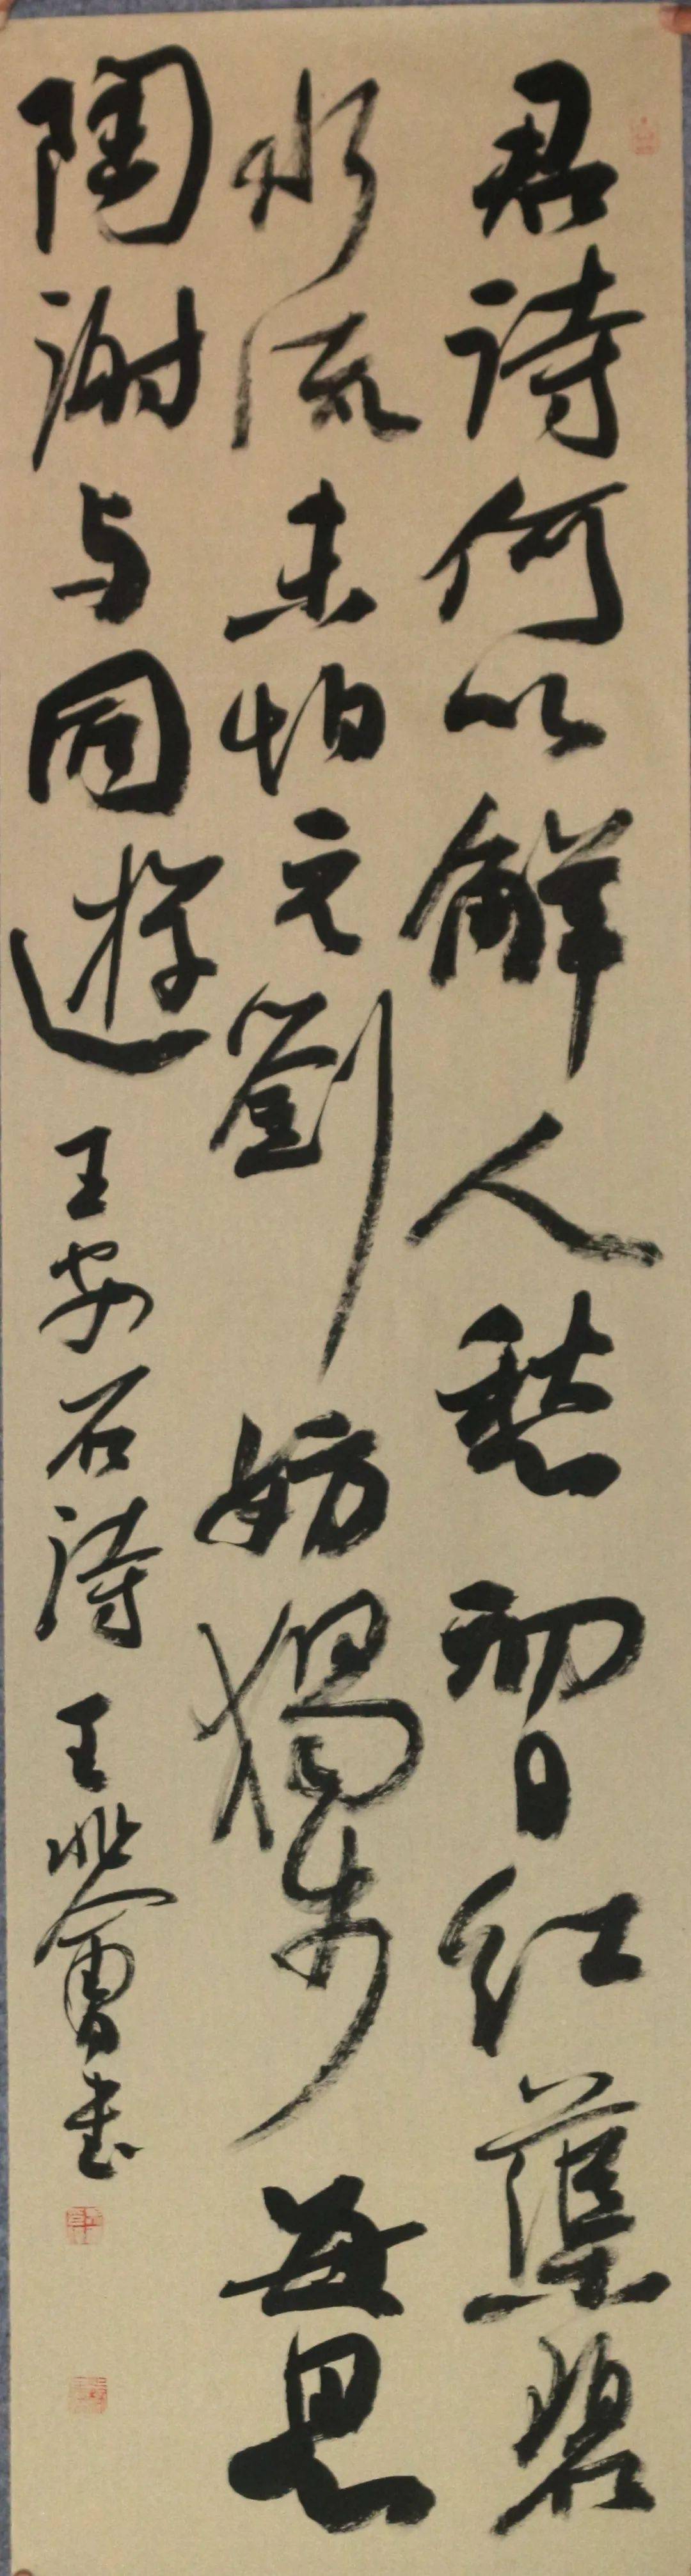 君诗何以解人愁初日红蕖碧
水流未怕元劉妨獨步每思
陶谢与同遊王安石诗王书